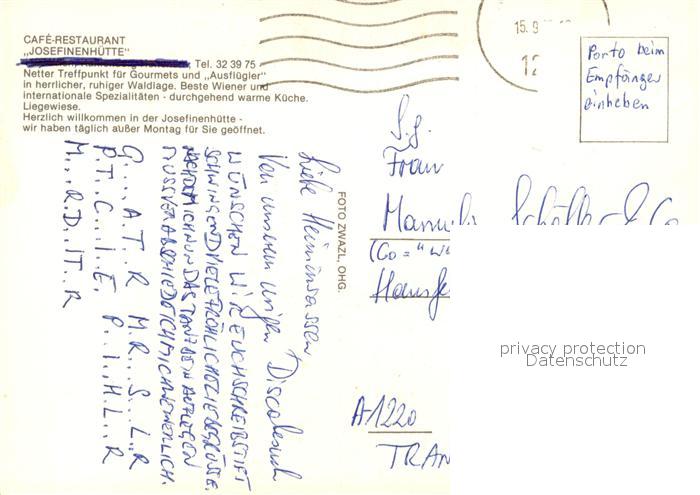 CAFÉ-RESTAURANT
„JOSEFINENHÜTTE"
Tel. 32 39 75
Netter Treffpunkt für Gourmets und „Ausflügler"
in herrlicher, ruhiger Waldlage. Beste Wiener und
internationale Spezialitäten - durchgehend warme Küche.
Liegewiese.
Herzlich willkommen in der Josefinenhütte -
wir haben täglich außer Montag für Sie geöffnet.
15. 9
12
Porto beim
Empfänger
einheben
S.g.
Frau
(Co = "
A-1220
TRAN
FOTO ZWAZL, OHG.
Liebe Heiminsassen
Von unserem urigen Discobesuch
WÜNSCHEN WIR EUCH SCHREIBSTIFT
SCHWINGEND VIELE FRÖHLICHE LIEBE GRÜSSE.
NACHDEM ICH NUN DAS TANZBEIN AUFLEGEN
MUSS VERABSCHIEDE ICH MICH WEINERLICH.
G...A.T..R M.R..S..L..R
P.T.C...I.E. P..I..H.L..R
M...R.D..IT..R
privacy protection
Datenschutz